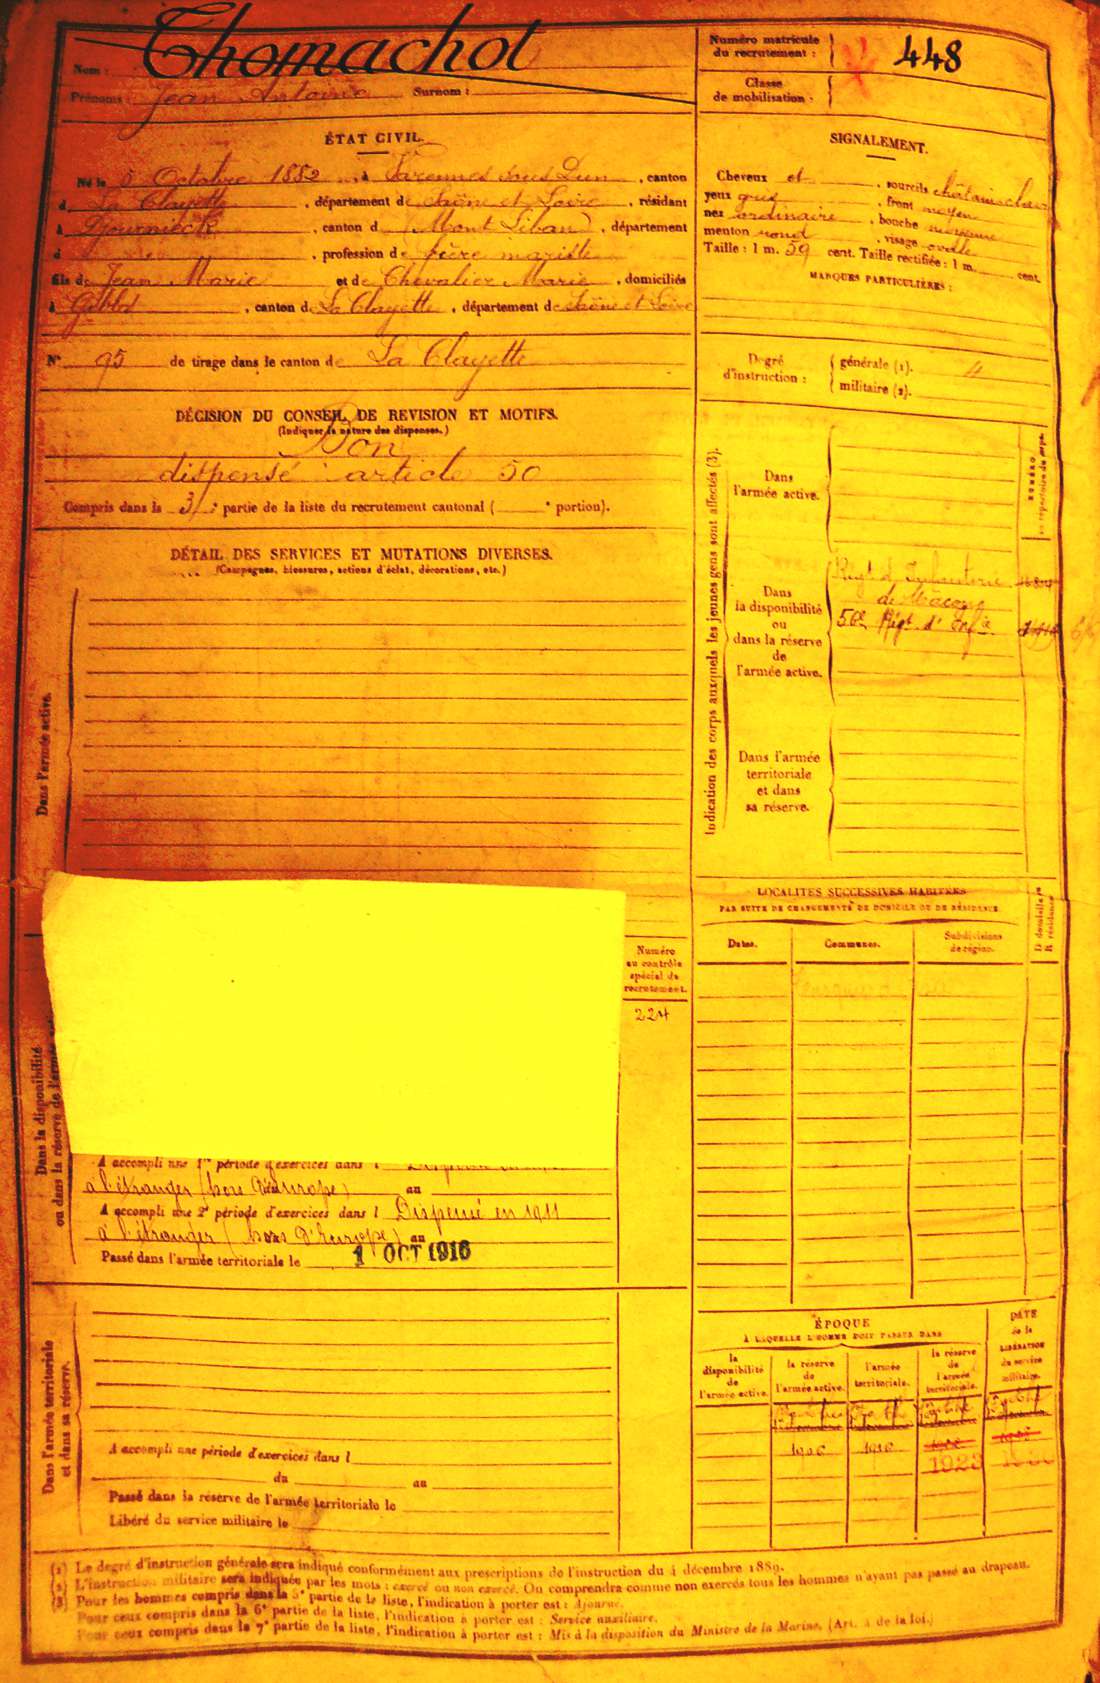 Nom : Thomachot
Prénoms : Jean Antoine Surnom :
Numéro matricule
du recrutement :
448
Classe
de mobilisation :
ÉTAT CIVIL.
Né le 5 Octobre 1882, à Varennes sous Dun, canton
d La Clayette, département de Saône et Loire, résidant
à Djournieck, canton d (Mont Liban), département
d , profession de frère mariste
fils de Jean Marie et de Chevalier Marie, domiciliés
à Gibles, canton de La Clayette, département de Saône et Loire
N° 95 de tirage dans le canton de La Clayette
SIGNALEMENT.
Cheveux et , sourcils châtain clair
yeux gris , front moyen
nez ordinaire , bouche moyenne
menton rond , visage ovale
Taille : 1 m. 59 cent. Taille rectifiée : 1 m. cent.
MARQUES PARTICULIÈRES :
Degré
d'instruction :
générale (1).
militaire (2).
DÉCISION DU CONSEIL DE REVISION ET MOTIFS.
(Indiquer la nature des dispenses.)
Bon
dispensé article 50
Compris dans la 3e partie de la liste du recrutement cantonal ( e portion).
DÉTAIL DES SERVICES ET MUTATIONS DIVERSES.
(Campagnes, blessures, actions d'éclat, décorations, etc.)
Dans l'armée active.
Indication des corps auxquels les jeunes gens sont affectés (3).
NUMÉRO
au répertoire du corps.
Dans
l'armée active.
Dans
la disponibilité
ou
dans la réserve
de
l'armée active.
Régt d'Infanterie
de Mâcon
56e Régt d'Infie
Dans l'armée
territoriale
et dans
sa réserve.
LOCALITÉS SUCCESSIVES HABITÉES
PAR SUITE DE CHANGEMENTS DE DOMICILE OU DE RÉSIDENCE.
Dates.
Communes.
Subdivisions
de région.
D domicile ou
R résidence.
Numéro
au contrôle
spécial du
recrutement.
224
Dans la disponibilité
ou dans la réserve de l'armée
A accompli une 1re période d'exercices dans l
à l'étranger (hors d'Europe) au
A accompli une 2e période d'exercices dans l Dispensé en 1911
à l'étranger (hors d'Europe) au
Passé dans l'armée territoriale le 1 OCT 1916
Dans l'armée territoriale
et dans sa réserve.
A accompli une période d'exercices dans l
du au
Passé dans la réserve de l'armée territoriale le
Libéré du service militaire le
ÉPOQUE
À LAQUELLE L'HOMME DOIT PASSER DANS
DATE
de la
LIBÉRATION
du service
militaire.
la
disponibilité
de
l'armée active.
la réserve
de
l'armée active.
l'armée
territoriale.
la réserve
de
l'armée
territoriale.
1906
1916
1923
(1) Le degré d'instruction générale sera indiqué conformément aux prescriptions de l'instruction du 4 décembre 1889.
(2) L'instruction militaire sera indiquée par les mots : exercé ou non exercé. On comprendra comme non exercés tous les hommes n'ayant pas passé au drapeau.
(3) Pour les hommes compris dans la 5e partie de la liste, l'indication à porter est : Ajourné.
Pour ceux compris dans la 6e partie de la liste, l'indication à porter est : Service auxiliaire.
Pour ceux compris dans la 7e partie de la liste, l'indication à porter est : Mis à la disposition du Ministre de la Marine. (Art. 4 de la loi.)